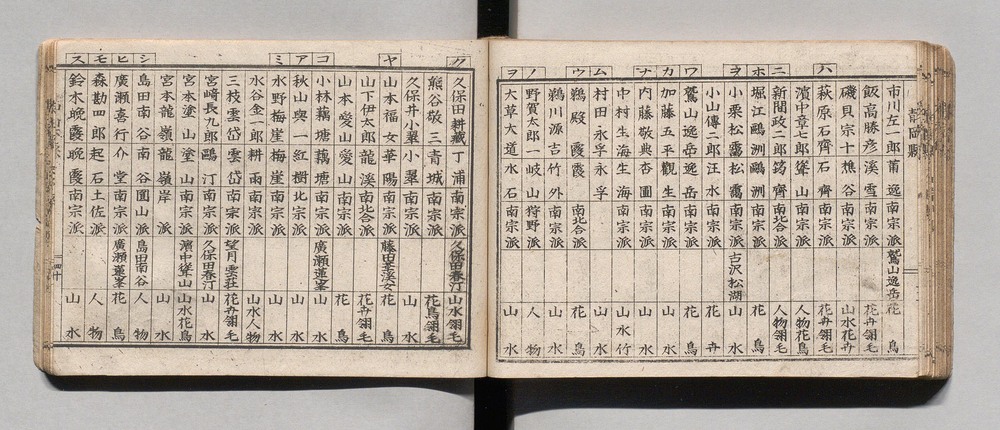 市川左一郎 莆逸 南宗派 鷲山逸岳 花鳥
飯高勝彦 溪雪 南宗派 花卉翎毛
磯貝宗十 樵谷 南宗派 山水花卉
ハ 萩原石齊 石齊 南宗派 花卉翎毛
濱中章七郎 聳山 南宗派 人物花鳥
ニ 新聞政二郎 筠齊 南北合派 人物翎毛
ホ 堀江鷗洲 鷗洲 南宗派 花鳥
ヲ 小栗松靄 松靄 南宗派 古沢松湖 山水
小山傳二郎 汪水 南宗派 花卉
ワ 鷲山逸岳 逸岳 南宗派 花鳥
カ 加藤五平 觀生 南宗派 山水
ナ 内藤敬典 杏圃 南宗派 山水
中村生海 生海 南宗派 山水竹
ム 村田永孚 永孚 南宗派 山水
ウ 鵜殿霞 霞 南北合派 花鳥
鵜川源吉 竹外 南宗派 山水
ノ 野賀太郎一 岐山 狩野派 人物
ヲ 大草大道 水石 南宗派 山水
ク 久保田耕藏 丁浦 南宗派 久保田春汀 山水翎毛
熊谷敬三 青城 南宗派 花鳥翎毛
久保井小翠 小翠 南宗派 山水
ヤ 山本福女 華陽 南宗派 藤田美渓女 花鳥
山下伊太郎 龍溪 南北合派 花卉翎毛
山本愛山 愛山 南宗派 花鳥
コ 小林藕塘 藕塘 南宗派 廣瀬蓮峯 山水
ア 秋山與一 紅樹 北宗派 山水
ミ 水野梅崖 梅崖 南宗派 山水
水谷金一郎 耕雨 南宗派 山水人物
三枝雲岱 雲岱 南宗派 望月雲荘 花卉翎毛
宮﨑長九郎 鷗汀 南宗派 久保田春汀 山水
宮本塗山 塗山 南宗派 濱中聳山 山水花鳥
宮本龍嶺 龍嶺岸 南宗派 山水
シ 島田南谷 南谷 圓山派 島田南谷 人物
ヒ 廣瀬喜行 介堂 南宗派 廣瀬蓮峯 花鳥
モ 森勘四郎 起石 土佐派 人物
ス 鈴木晩霞 晩霞 南宗派 山水